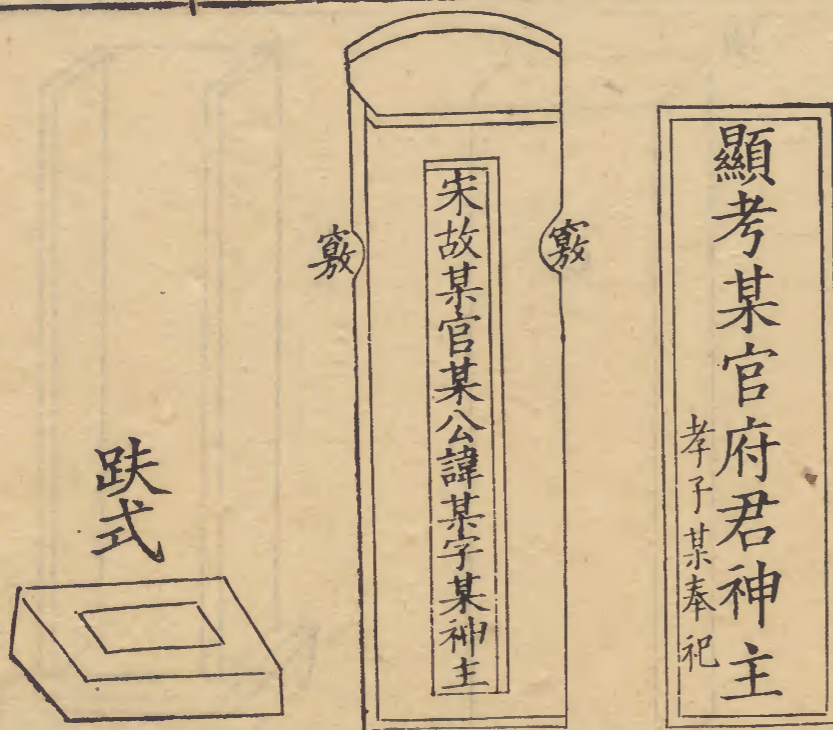 顯考某官府君神主
孝子某奉祀
竅
宋故某官某公諱某字某神主
竅
趺式